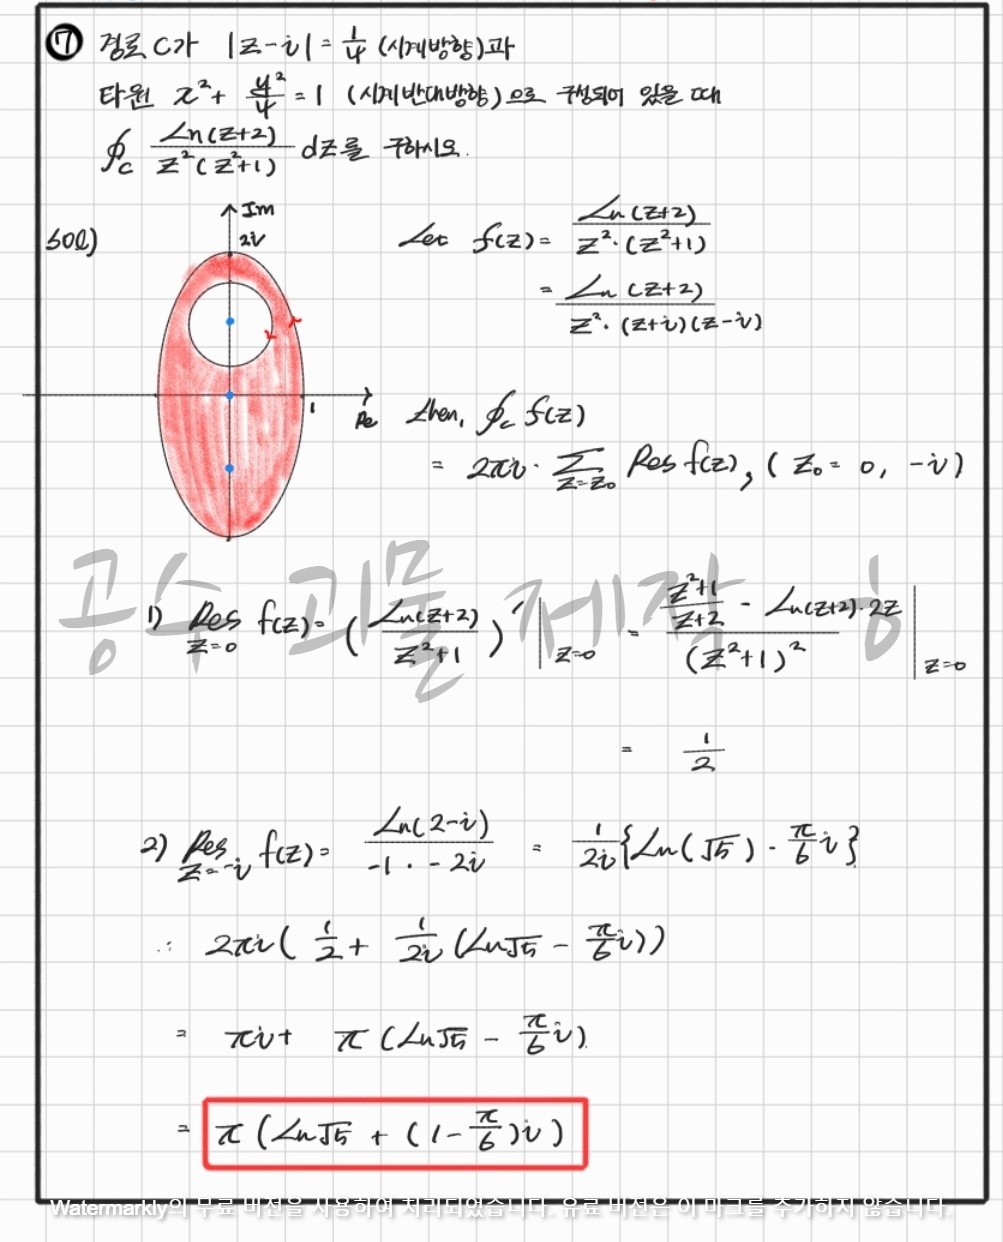 ⑦ 경로 C가 |z-i| = 1/4 (시계방향)과
타원 x² + y²/4 = 1 (시계반대방향)으로 구성되어 있을 때
∮_C Ln(z+2)/(z²(z²+1)) dz를 구하시오.
sol)
Im
2i
1
Re
Let f(z) = Ln(z+2)/(z²·(z²+1))
= Ln(z+2)/(z²·(z+i)(z-i))
then, ∮_C f(z)
= 2πi · Σ_{z=z₀} Res f(z), (z₀ = 0, -i)
공수 괴물 제작
1) Res_{z=0} f(z) = (Ln(z+2)/(z²+1))′ |_{z=0} = ((z²+1)/(z+2) - Ln(z+2)·2z)/(z²+1)² |_{z=0}
= 1/2
2) Res_{z=-i} f(z) = Ln(2-i)/(-1·-2i) = 1/2i {Ln(√5) - π/6 i}
∴ 2πi( 1/2 + 1/2i (Ln√5 - π/6 i))
= πi + π (Ln√5 - π/6 i)
= π (Ln√5 + (1 - π/6)i)
Watermarkly의 무료 버전을 사용하여 처리되었습니다. 유료 버전은 이 마크를 추가하지 않습니다.